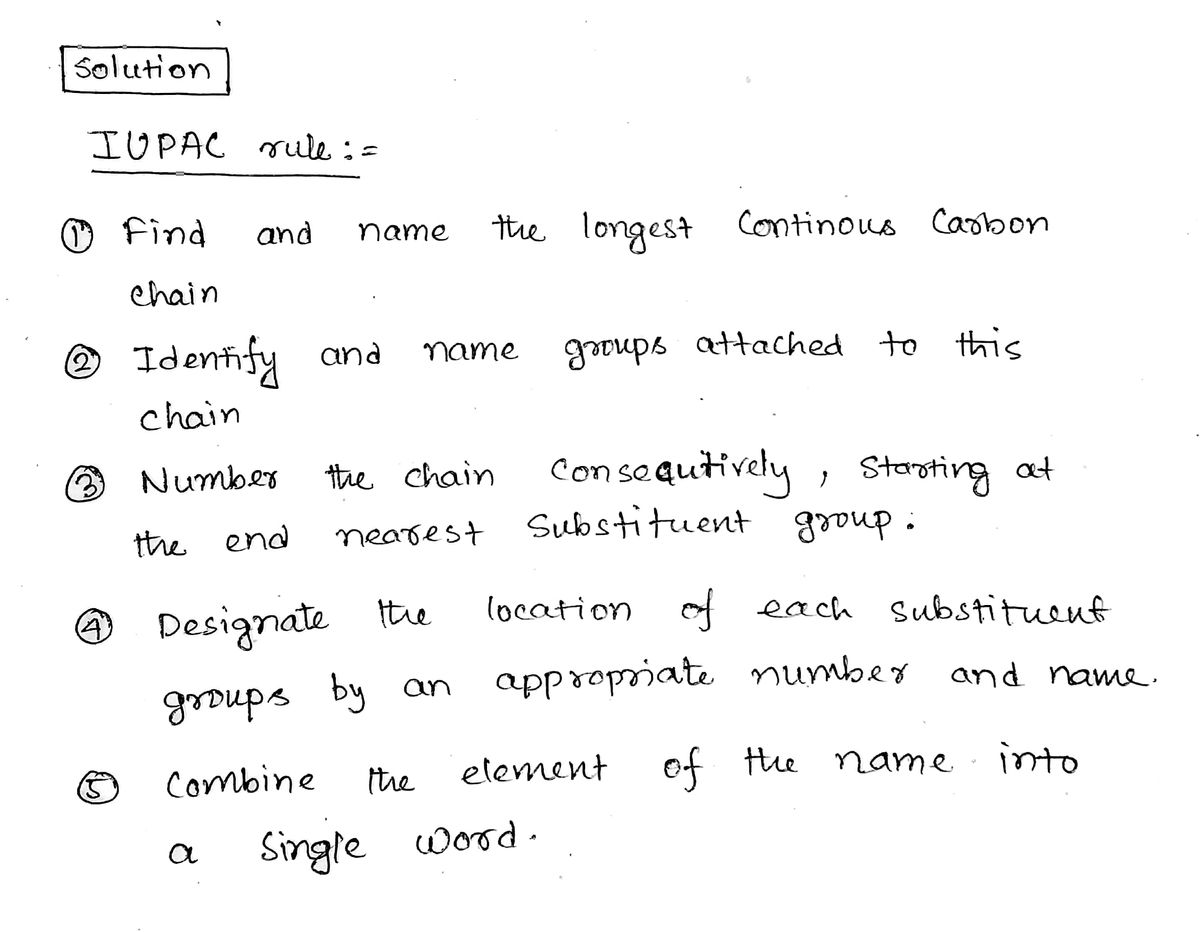 Solution
IUPAC rule :=
① Find and name the longest Continous Carbon
chain
② Identify and name groups attached to this
chain
③ Number the chain Consequtively, Starting at
the end nearest Substituent group.
④ Designate the location of each substituent
groups by an appropriate number and name.
⑤ Combine the element of the name into
a Single word.